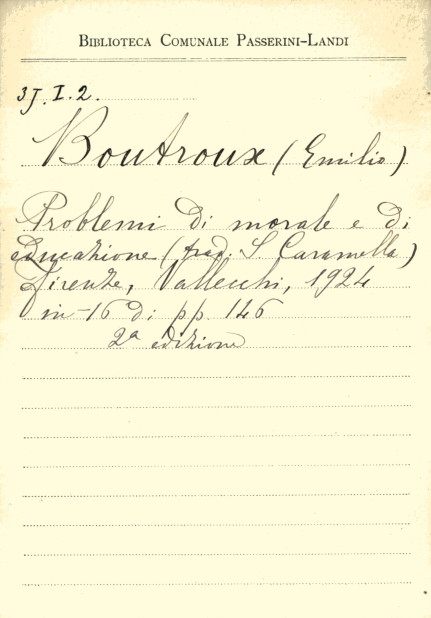 BIBLIOTECA COMUNALE PASSERINI-LANDI
3J. I. 2.
Boutroux (Emilio)
Problemi di morale e di
educazione (trad. S. Caramella)
Firenze, Vallecchi, 1924
in-16 di pp. 146
2ª edizione